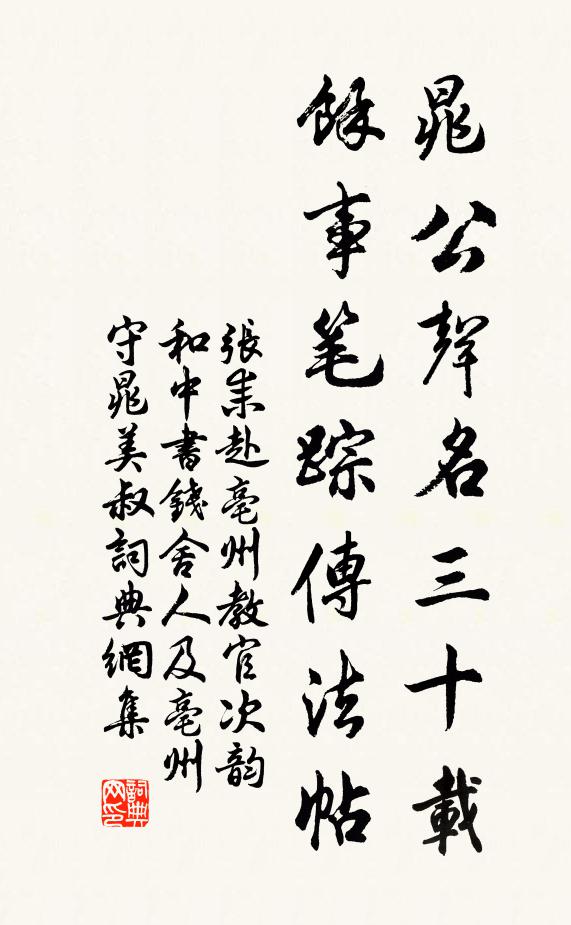 晁公聲名三十載
餘事笔踪傳法帖
張耒赴亳州教官次韵
和中書錢舍人及亳州
守晁美叔詞典網集
詞典网印